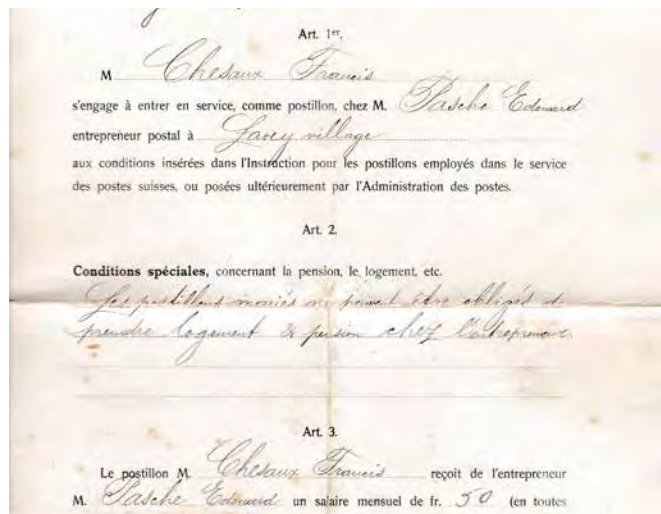 Art. 1er.
M Chesaux Francis
s'engage à entrer en service, comme postillon, chez M. Pasche Edouard
entrepreneur postal à Lancy village
aux conditions insérées dans l'Instruction pour les postillons employés dans le service
des postes suisses, ou posées ultérieurement par l'Administration des postes.
Art. 2.
Conditions spéciales, concernant la pension, le logement, etc.
Les postillons mariés ne peuvent être obligés de
prendre logement & pension chez l'entrepreneur
Art. 3.
Le postillon M. Chesaux Francis reçoit de l'entrepreneur
M. Pasche Edouard un salaire mensuel de fr. 50 (en toutes